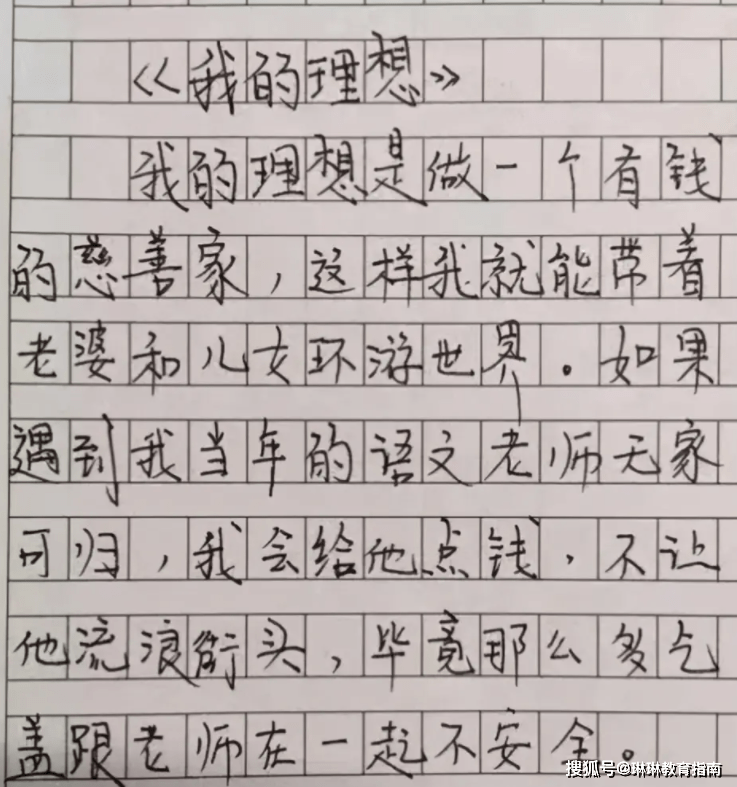 《我的理想》
我的理想是做一个有钱
的慈善家，这样我就能带着
老婆和儿女环游世界。如果
遇到我当年的语文老师无家
可归，我会给他点钱，不让
他流浪街头，毕竟那么多乞
盖跟老师在一起不安全。
搜狐号@琳琳教育指南